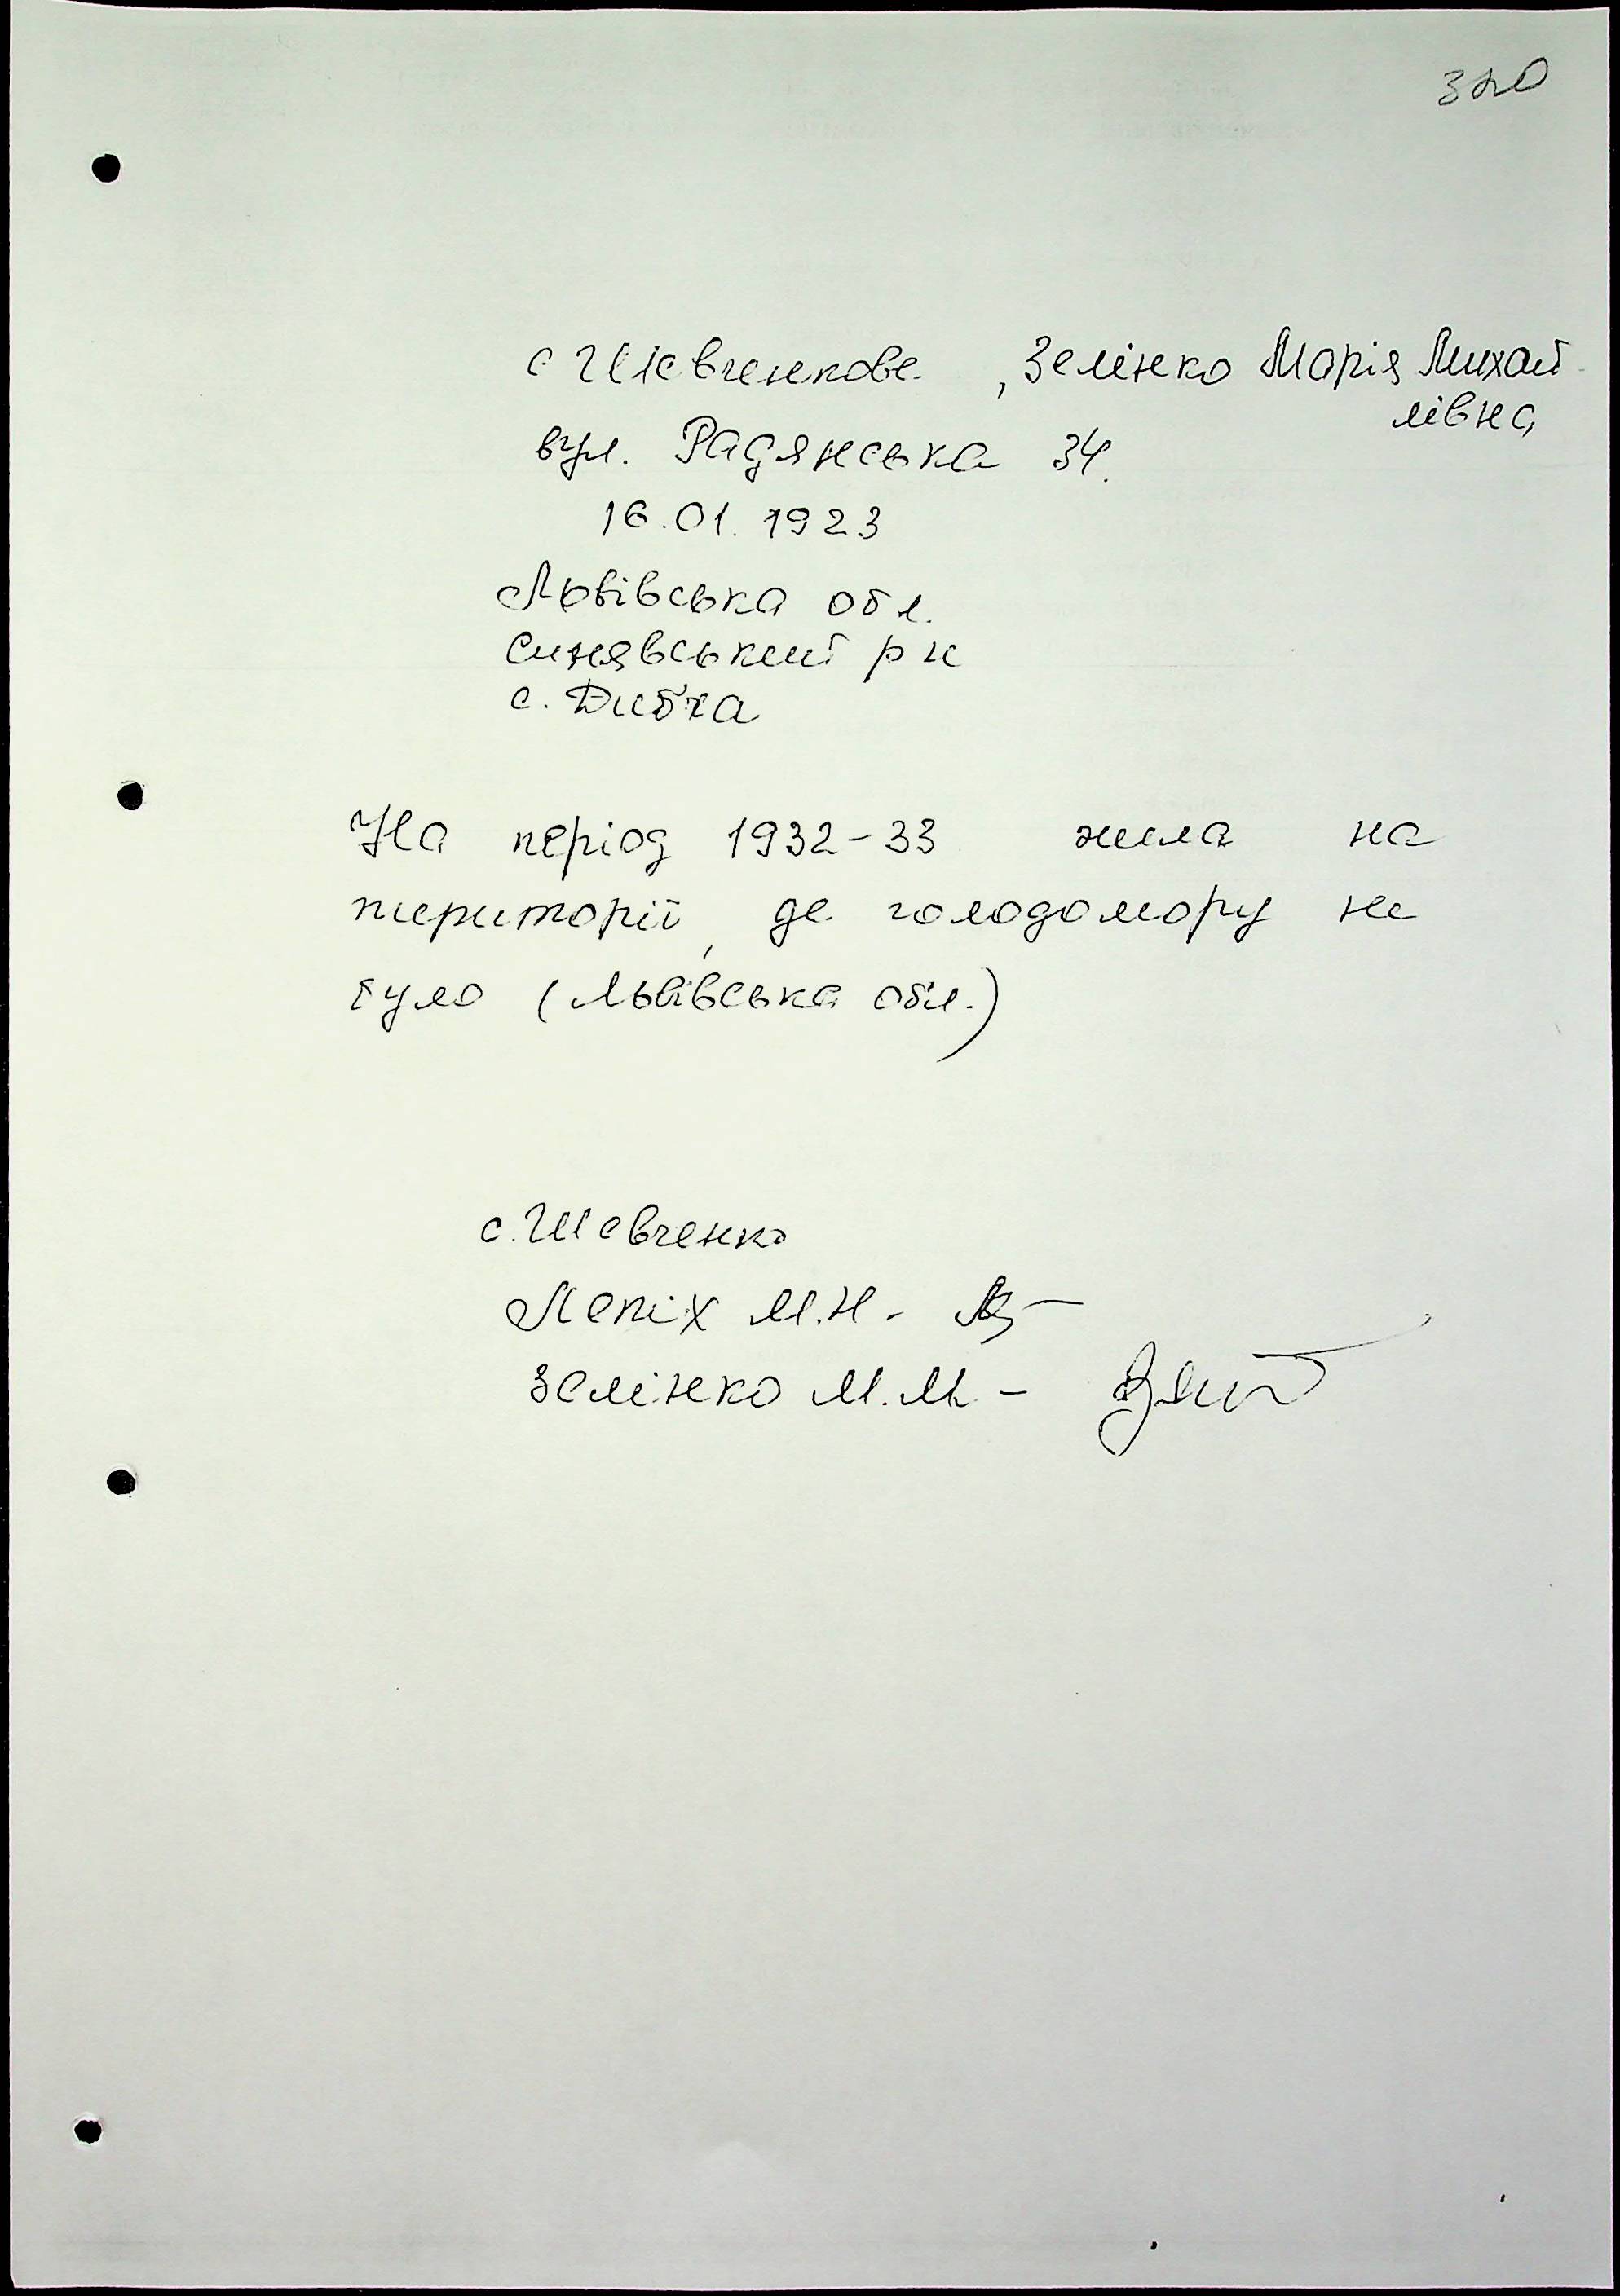 320
с Шевченкове , Зелінко Марія Михай
лівна
вул. Радянська 34.
16.01.1923
Львівська обл.
Синявський р н
с. Дибка
На період 1932-33 жила на
території, де голодомору не
було (Львівська обл.)
с. Шевченко
Лепіх М.Н. -
Зелінко М.М. -